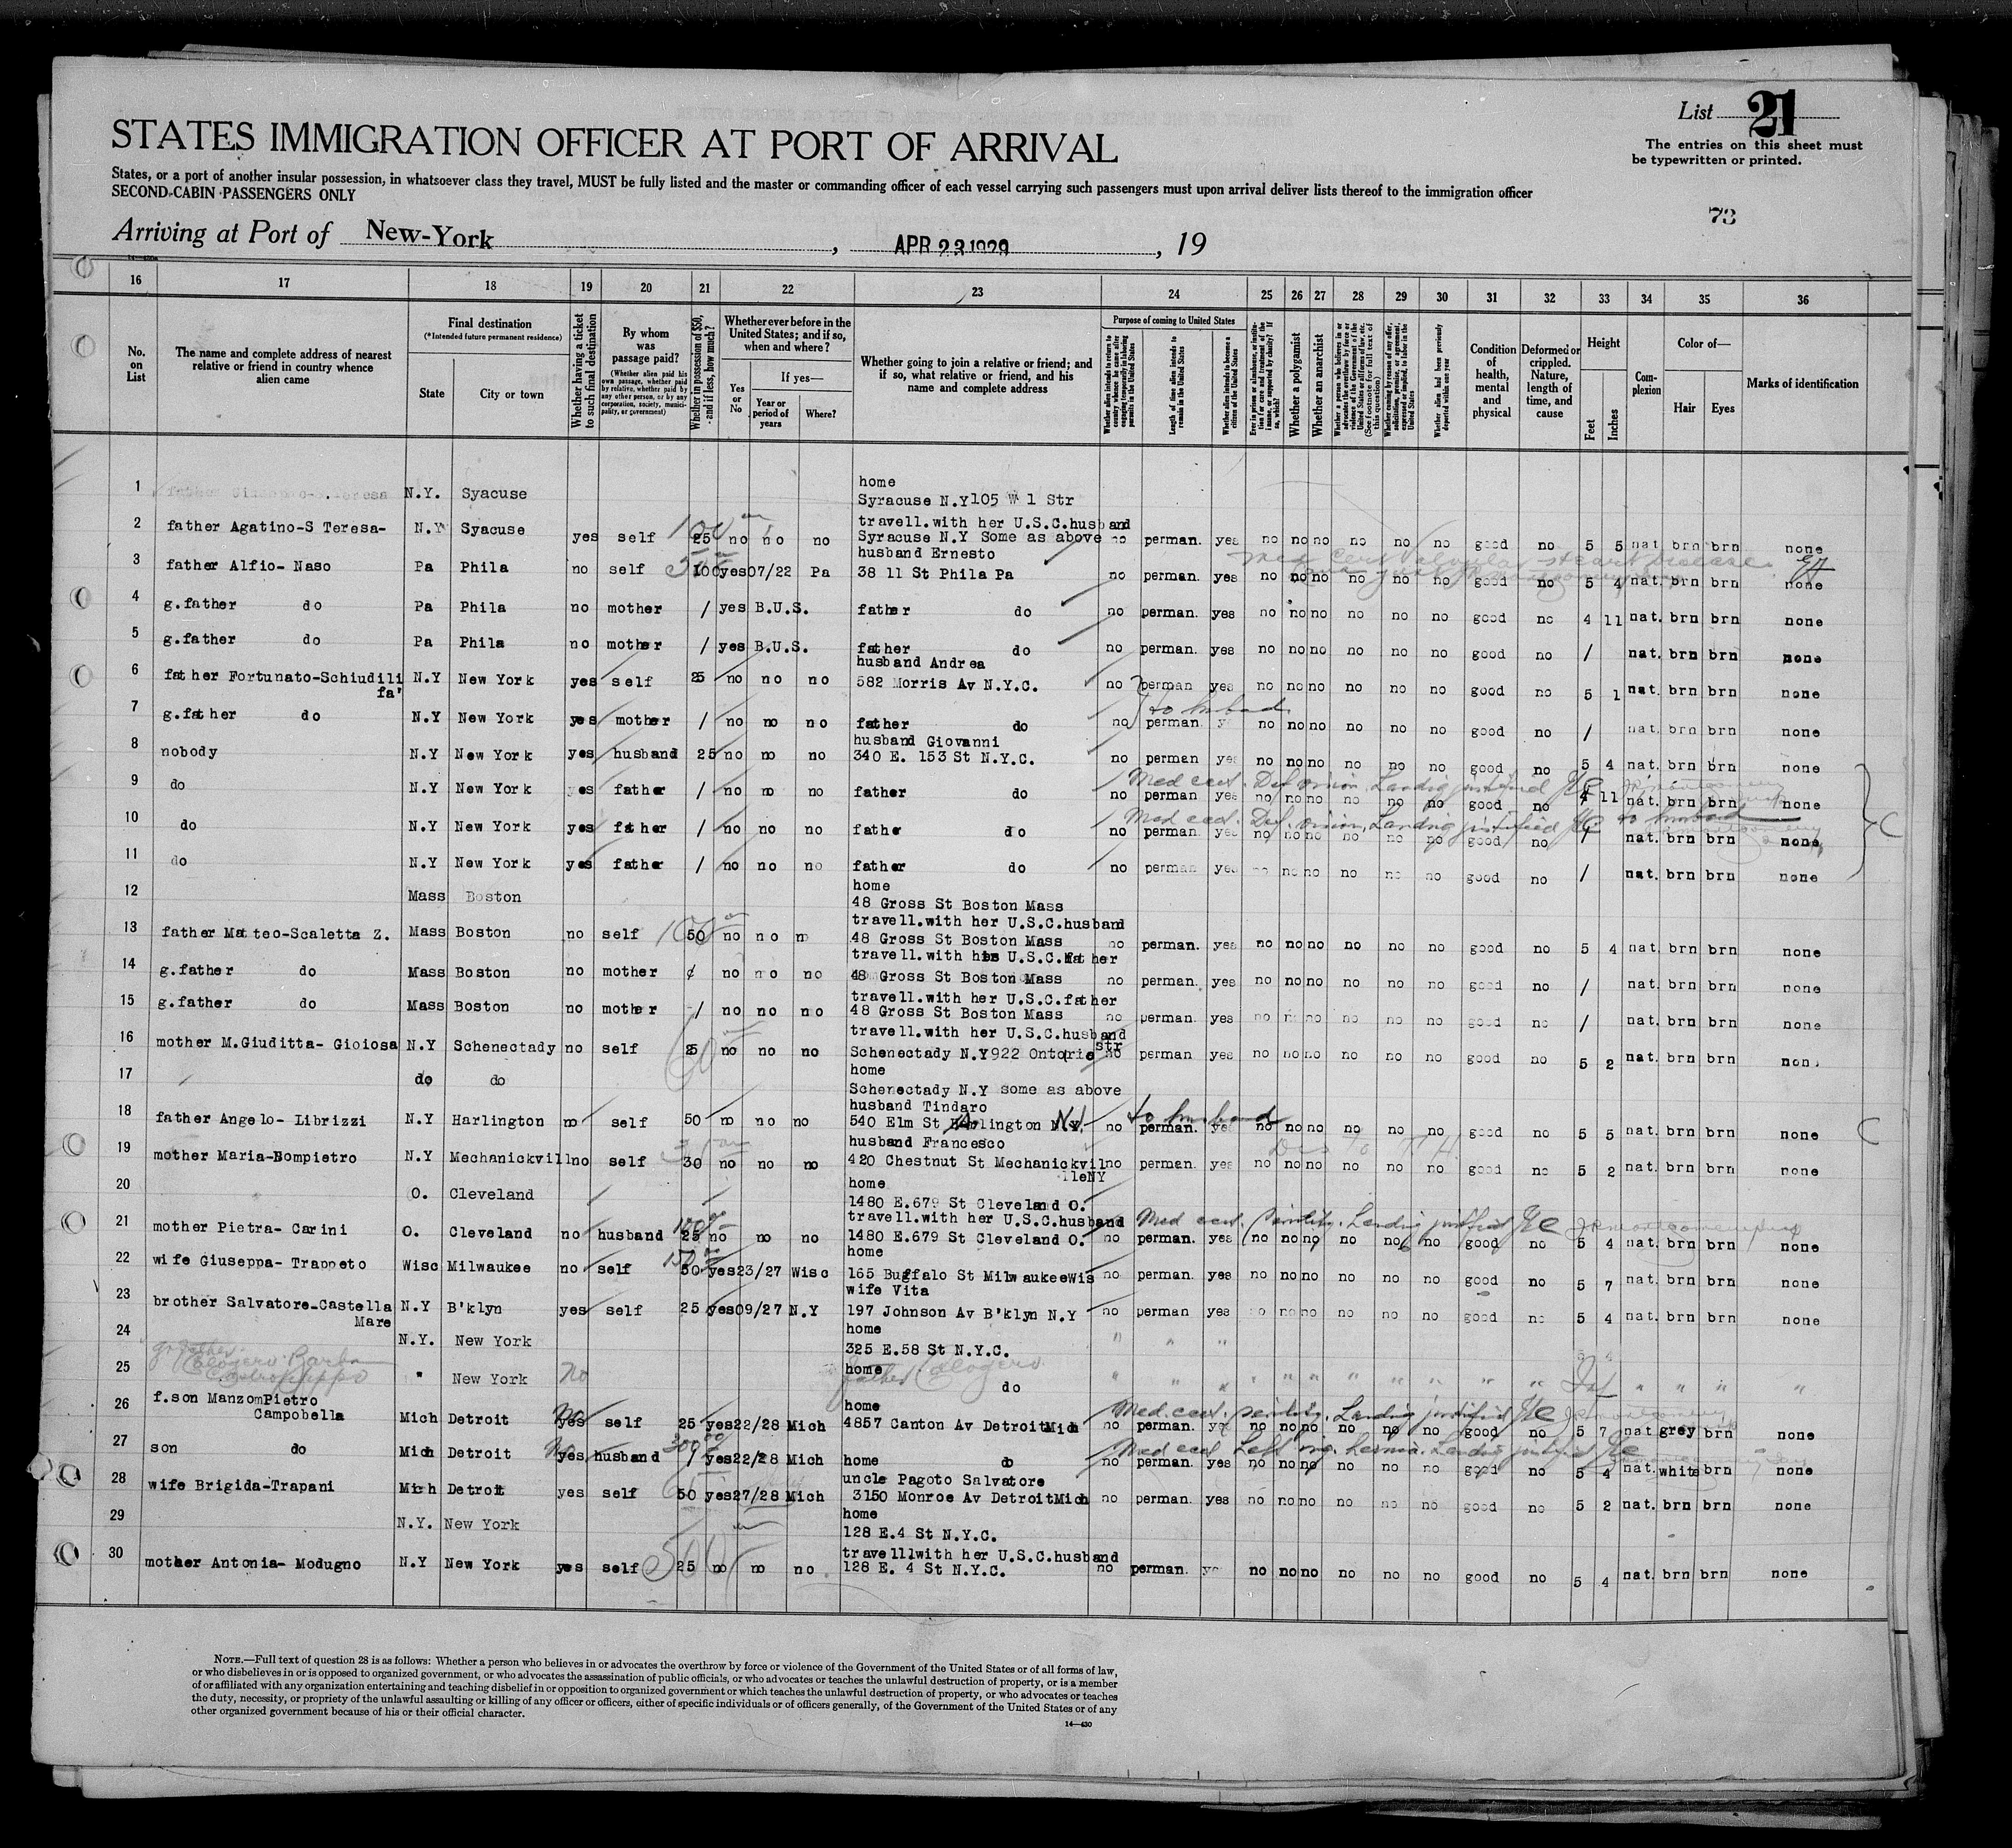 List 21
The entries on this sheet must
be typewritten or printed.
STATES IMMIGRATION OFFICER AT PORT OF ARRIVAL
States, or a port of another insular possession, in whatsoever class they travel, MUST be fully listed and the master or commanding officer of each vessel carrying such passengers must upon arrival deliver lists thereof to the immigration officer
SECOND-CABIN PASSENGERS ONLY
73
Arriving at Port of New-York, APR 23 1929, 19
16 17 18 19 20 21 22 23 24 25 26 27 28 29 30 31 32 33 34 35 36
No. on List
The name and complete address of nearest relative or friend in country whence alien came
Final destination
(*Intended future permanent residence)
State
City or town
Whether having a ticket to such final destination
By whom was passage paid?
(Whether alien paid his own passage, whether paid by relative, whether paid by any other person, or by any corporation, society, municipality, or government)
Whether in possession of $50, and if less, how much?
Whether ever before in the United States; and if so, when and where?
Yes or No
If yes—
Year or period of years
Where?
Whether going to join a relative or friend; and if so, what relative or friend, and his name and complete address
Purpose of coming to United States
Length of time alien intends to remain in the United States
Whether alien intends to become a citizen of the United States
Whether a polygamist
Whether an anarchist
Whether alien had been previously deported within one year
Condition of health, mental and physical
Deformed or crippled. Nature, length of time, and cause
Height
Feet
Inches
Complexion
Color of—
Hair
Eyes
Marks of identification
1 N.Y. Syacuse home
Syracuse N.Y 105 W 1 Str
2 father Agatino-S Teresa- N.Y Syacuse yes self 25 no no no travell.with her U.S.C.husband
Syracuse N.Y Some as above no perman. yes no no no no no no good no 5 5 nat brn brn none
3 father Alfio- Naso Pa Phila no self 100 yes 07/22 Pa husband Ernesto
38 11 St Phila Pa no perman. yes no no no no no no good no 5 4 nat. brn brn none
4 g.father do Pa Phila no mother / yes B.U.S. father do no perman. yes no no no no no no good no 4 11 nat. brn brn none
5 g.father do Pa Phila no mother / yes B.U.S. father do no perman. yes no no no no no no good no / nat. brn brn none
6 father Fortunato-Schiudili
fa' N.Y New York yes self 25 no no no husband Andrea
582 Morris Av N.Y.C. no perman yes no no no no no no good no 5 1 nat. brn brn none
to husband
7 g.father do N.Y New York yes mother / no no no father do no perman. no no no no no no good no / nat. brn brn none
8 nobody N.Y New York yes husband 25 no no no husband Giovanni
340 E. 153 St N.Y.C. no perman yes no no no no no no good no 5 4 nat. brn brn none
Landing justified
9 do N.Y New York yes father / no no no father do no perman yes no no no no no no good no 4 11 nat. brn brn none
Landing justified to husband
10 do N.Y New York yes father / no no no fathe do no perman. yes no no no no no no good no / nat. brn brn none
11 do N.Y New York yes father / no no no father do no perman yes no no no no no no good no / nat. brn brn none
12 Mass Boston home
48 Gross St Boston Mass
13 father Matteo-Scaletta Z. Mass Boston no self 50 no no n travell.with her U.S.C.husband
48 Gross St Boston Mass no perman. yes no no no no no no good no 5 4 nat. brn brn none
14 g.father do Mass Boston no mother no no no travell.with his U.S.C. father
48 Gross St Boston Mass no perman. yes no no no no no no good no / nat. brn brn none
15 g.father do Mass Boston no mother / no no no travell.with her U.S.C.father
48 Gross St Boston Mass no perman. yes no no no no no good no / nat. brn brn none
16 mother M.Giuditta- Gioiosa N.Y Schenectady no self 25 no no no travell.with her U.S.C.husband
Schenectady N.Y 922 Ontorio str no perman yes no no no no no no good no 5 2 nat. brn brn none
17 do do home
Schenectady N.Y some as above
18 father Angelo- Librizzi N.Y Harlington no self 50 no no no husband Tindaro
540 Elm St no perman. yes no no no no no no good no 5 5 nat. brn brn none
to husband
19 mother Maria-Bompietro N.Y Mechanickvill no self 30 no no no husband Francesco
420 Chestnut St Mechanickvil
lleNY no perman. yes no no no no no no good no 5 2 nat. brn brn none
20 O. Cleveland home
1480 E.679 St Cleveland O.
Med cert. senility. Landing justified
21 mother Pietra- Carini O. Cleveland no husband 25 no no no travell.with her U.S.C.husband
1480 E.679 St Cleveland O. no perman. yes no no no no no no good no 5 4 nat. brn brn none
22 wife Giuseppa- Trappeto Wisc Milwaukee no self 50 yes 23/27 Wisc home
165 Buffalo St MilwaukeeWis no perman. yes no no no no no no good no 5 7 nat. brn brn none
23 brother Salvatore-Castella
Mare N.Y B'klyn yes self 25 yes 09/27 N.Y wife Vita
197 Johnson Av B'klyn N.Y no perman yes no no no no no no good no 5 4 nat. brn brn none
24 N.Y. New York home
325 E.58 St N.Y.C.
25 " New York no home
father Calogero do
26 f.son Manzom Pietro
Campobella Mich Detroit yes self 25 yes 22/28 Mich home
4857 Canton Av DetroitMich no perman. yes no no no no no no good no 5 7 nat grey brn none
Med. cert. senility. Landing justified
27 son do Mich Detroit yes husband / yes 22/28 Mich home do no perman. yes no no no no no no good no 5 4 nat. white brn none
Med cert Left ing. hernia. Landing justified
28 wife Brigida-Trapani Mich Detroit yes self 50 yes 27/28 Mich uncle Pagoto Salvatore
3150 Monroe Av DetroitMich no perman. yes no no no no no no good no 5 2 nat. brn brn none
29 N.Y. New York home
128 E.4 St N.Y.C.
30 mother Antonia- Modugno N.Y New York yes self 25 no no no travelllwith her U.S.C.husband
128 E. 4 St N.Y.C. no perman. no no no no no no good no 5 4 nat. brn brn none
NOTE.—Full text of question 28 is as follows: Whether a person who believes in or advocates the overthrow by force or violence of the Government of the United States or of all forms of law,
or who disbelieves in or is opposed to organized government, or who advocates the assassination of public officials, or who advocates or teaches the unlawful destruction of property, or is a member
of or affiliated with any organization entertaining and teaching disbelief in or opposition to organized government or which teaches the unlawful destruction of property, or who advocates or teaches
the duty, necessity, or propriety of the unlawful assaulting or killing of any officer or officers, either of specific individuals or of officers generally, of the Government of the United States or of any
other organized government because of his or their official character.
14—430